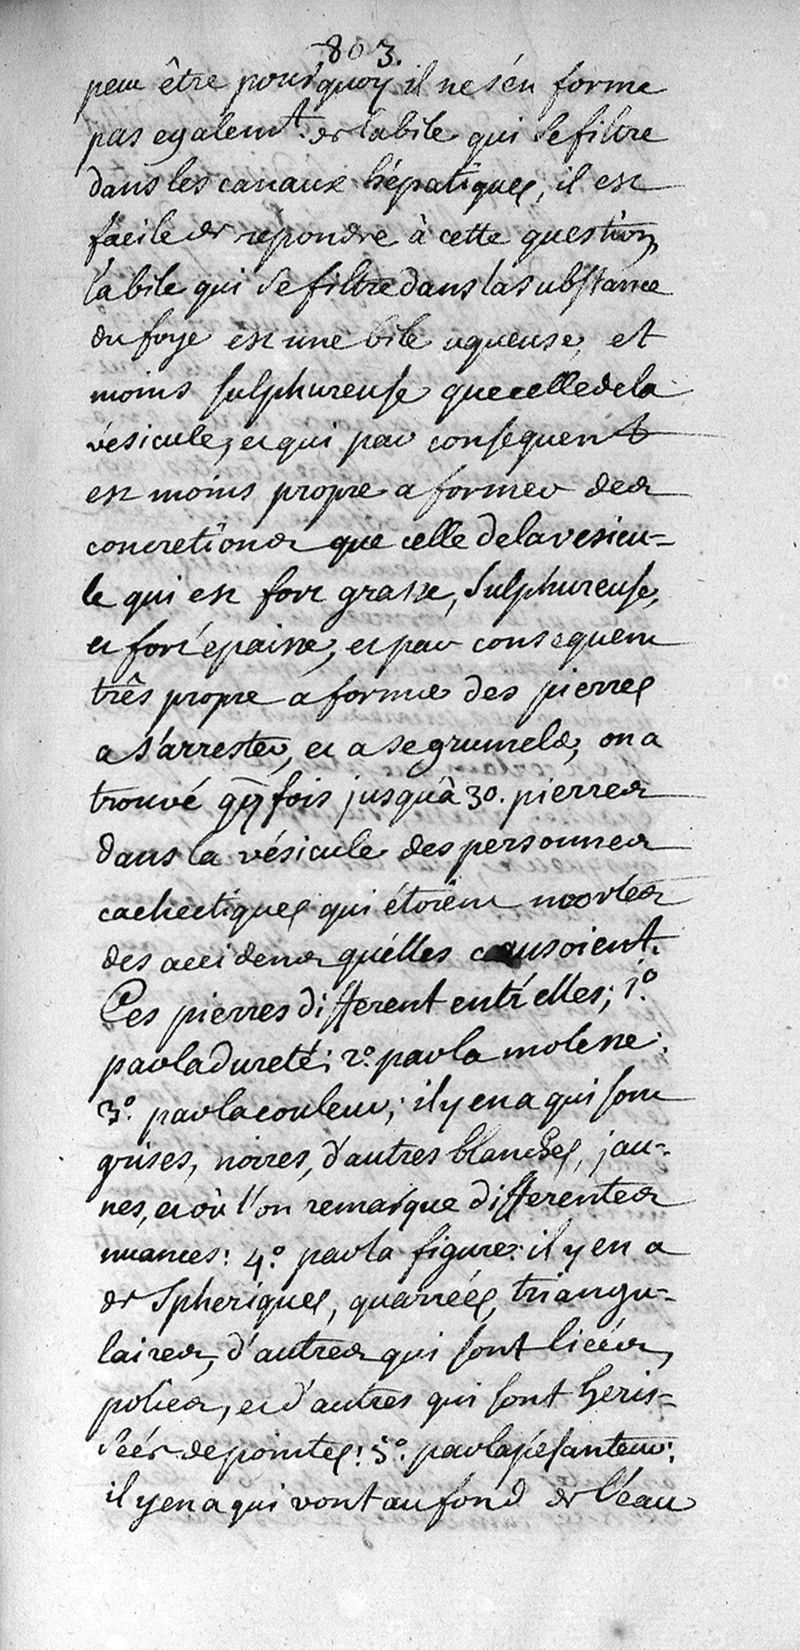 803.
peut être pourquoy il ne s'en forme
pas egalem.t de la bile qui se filtre
dans les canaux hépatiques, il est
facile de repondre à cette question,
la bile qui se filtre dans la substance
du foye est une bile aqueuse, et
moins sulphureuse que celle de la
vésicule, et qui par consequent
est moins propre a former des
concretions que celle de la vesicu-
le qui est fort grasse, sulphureuse,
et fort épaisse, et par consequent
très propre a former des pierres
a s'arrester, et a se grumeler, on a
trouvé qq fois jusqu'à 30. pierres
dans la vésicule des personnes
cachectiques qui étoient mortes
des accidens qu'elles causoient.
Ces pierres different entr'elles; 1.º
par la dureté; 2.º par la molesse;
3.º par la couleur; il y en a qui sont
grises, noires, d'autres blanches, jau-
nes, et où l'on remarque differentes
nuances: 4.º par la figure: il y en a
de spheriques, quarrées, triangu-
laires, d'autres qui sont licées,
polies, et d'autres qui sont heris-
sées de pointes: 5.º par la pesanteur:
il y en a qui vont au fond de l'eau